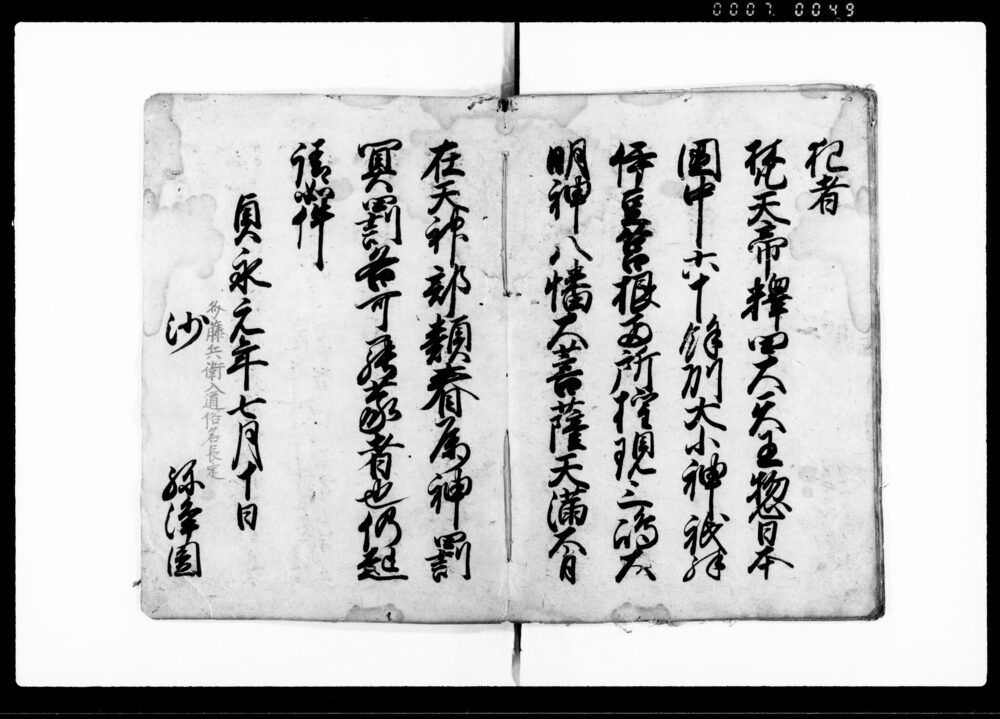 0007 0049
犯者
梵天帝釋四大天王惣日本
國中六十餘州大小神祇殊
伊豆筥根両所権現三嶋大
明神八幡大菩薩天満大自
在天神部類眷属神罰
冥罰各可罷蒙者也仍起
請如件
貞永元年七月十日
沙弥浄圓
斉藤兵衛入道俗名長定